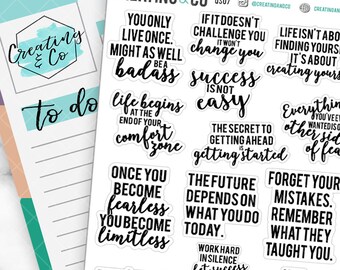 Creating
& Co
to do
CREATING&CO
@CREATINGANDCO
YOU ONLY
LIVE ONCE.
MIGHT AS WELL
BE A
badass
IF IT DOESN'T
CHALLENGE YOU
IT WON'T
change you
LIFE ISN'T ABO
FINDING YOURSE
IT'S ABOUT
creating yourse
success
IS NOT
easy
life begins
AT THE
END OF YOUR
comfort
zone
THE SECRET TO
GETTING AHEAD
IS
getting started
Everything
YOU'VE E
WANTED IS O
other sid
of fea
ONCE YOU
BECOME
fearless
YOU BECOME
limitless
THE FUTURE
DEPENDS ON
WHAT YOU DO
TODAY.
FORGET YOUR
MISTAKES.
REMEMBER
WHAT THEY
TAUGHT YOU.
WORK HARD
IN SILENCE
let success